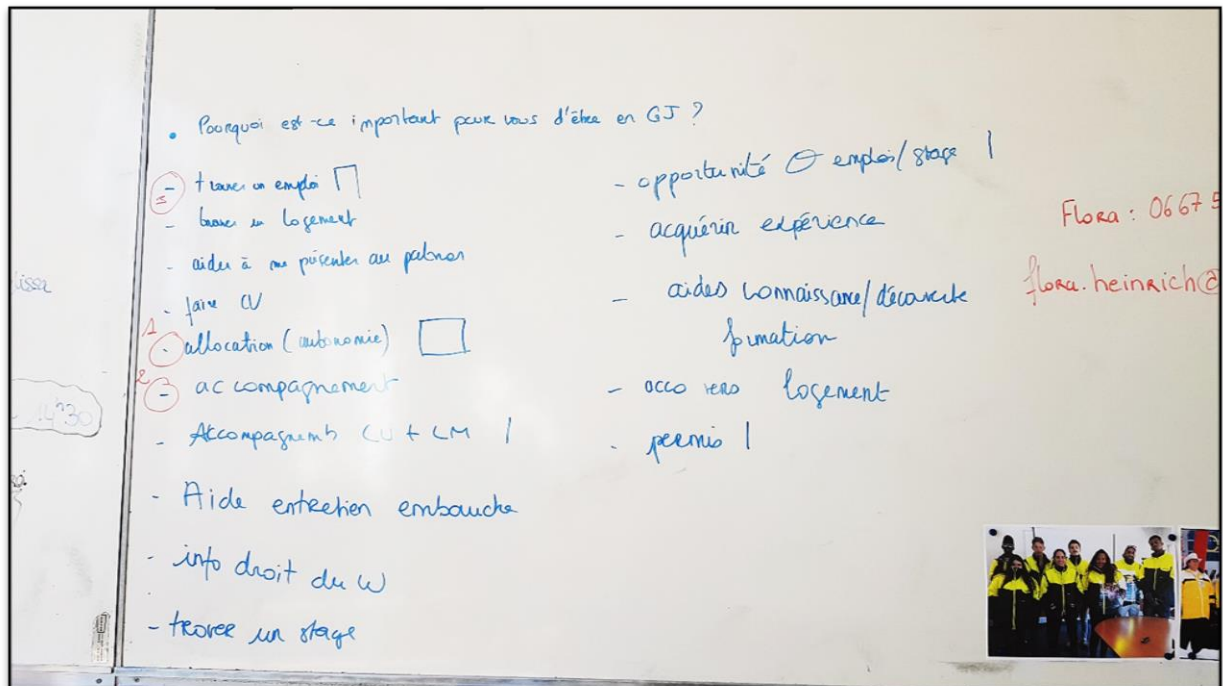 • Pourquoi est-ce important pour vous d'être en GJ ?
3 - trouver un emploi
- trouver un logement
- aider à me présenter au patron
- faire CV
1 - allocation (autonomie)
2 - accompagnement
- Accompagnemt CV + LM |
- Aide entretien embauche
- info droit du W
- trover un stage
- opportunité emploi/stage |
- acquérir expérience
- aides connaissance/découverte
formation
- acco vers logement
- permis |
Flora : 0667 5
flora.heinrich@
14h30